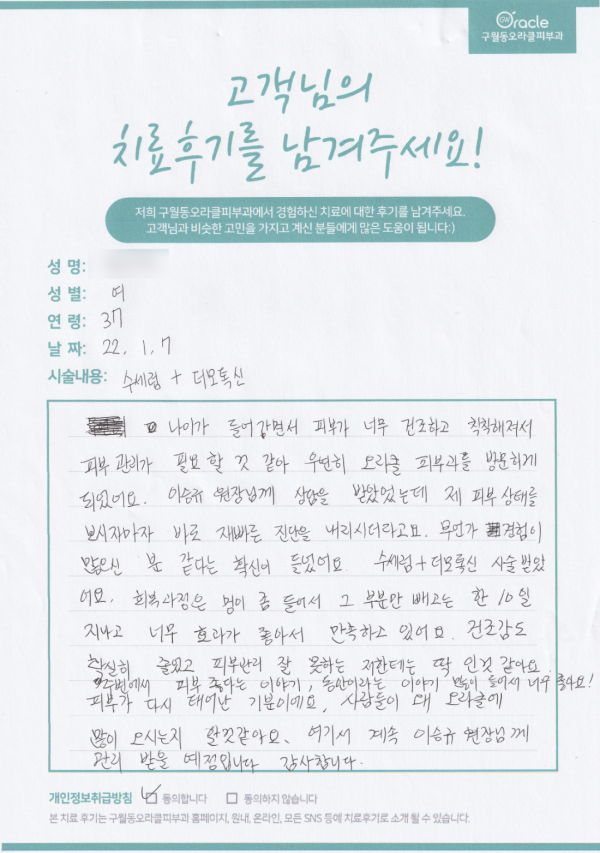 GW Oracle
구월동오라클피부과
고객님의
치료후기를 남겨주세요!
저희 구월동오라클피부과에서 경험하신 치료에 대한 후기를 남겨주세요.
고객님과 비슷한 고민을 가지고 계신 분들에게 많은 도움이 됩니다:)
성 명:
성 별: 여
연 령: 37
날 짜: 22. 1. 7
시술내용: 수세럼 + 더모톡신
나이가 들어가면서 피부가 너무 건조하고 칙칙해져서
피부 관리가 필요할 것 같아 우연히 오라클 피부과를 방문하게
되었어요. 이승규 원장님께 상담을 받았었는데 제 피부 상태를
보시자마자 바로 재빠른 진단을 내리시더라고요. 무언가 경험이
많으신 분 같다는 확신이 들었어요 수세럼+더모톡신 시술 받았
어요. 회복과정은 멍이 좀 들어서 그 부분만 빼고는 한 10일
지나고 너무 효과가 좋아서 만족하고 있어요. 건조감도
확실히 줄었고 피부관리 잘 못하는 저한테는 딱 인것 같아요.
주변에서 피부 좋다는 이야기, 동안이라는 이야기 많이 들어서 너무 좋아요!
피부가 다시 태어난 기분이에요, 사람들이 왜 오라클에
많이 오시는지 알것같아요. 여기서 계속 이승규 원장님께
관리 받을 예정입니다 감사합니다.
개인정보취급방침 동의합니다 동의하지 않습니다
본 치료 후기는 구월동오라클피부과 홈페이지, 원내, 온라인, 모든 SNS 등에 치료후기로 소개 될 수 있습니다.